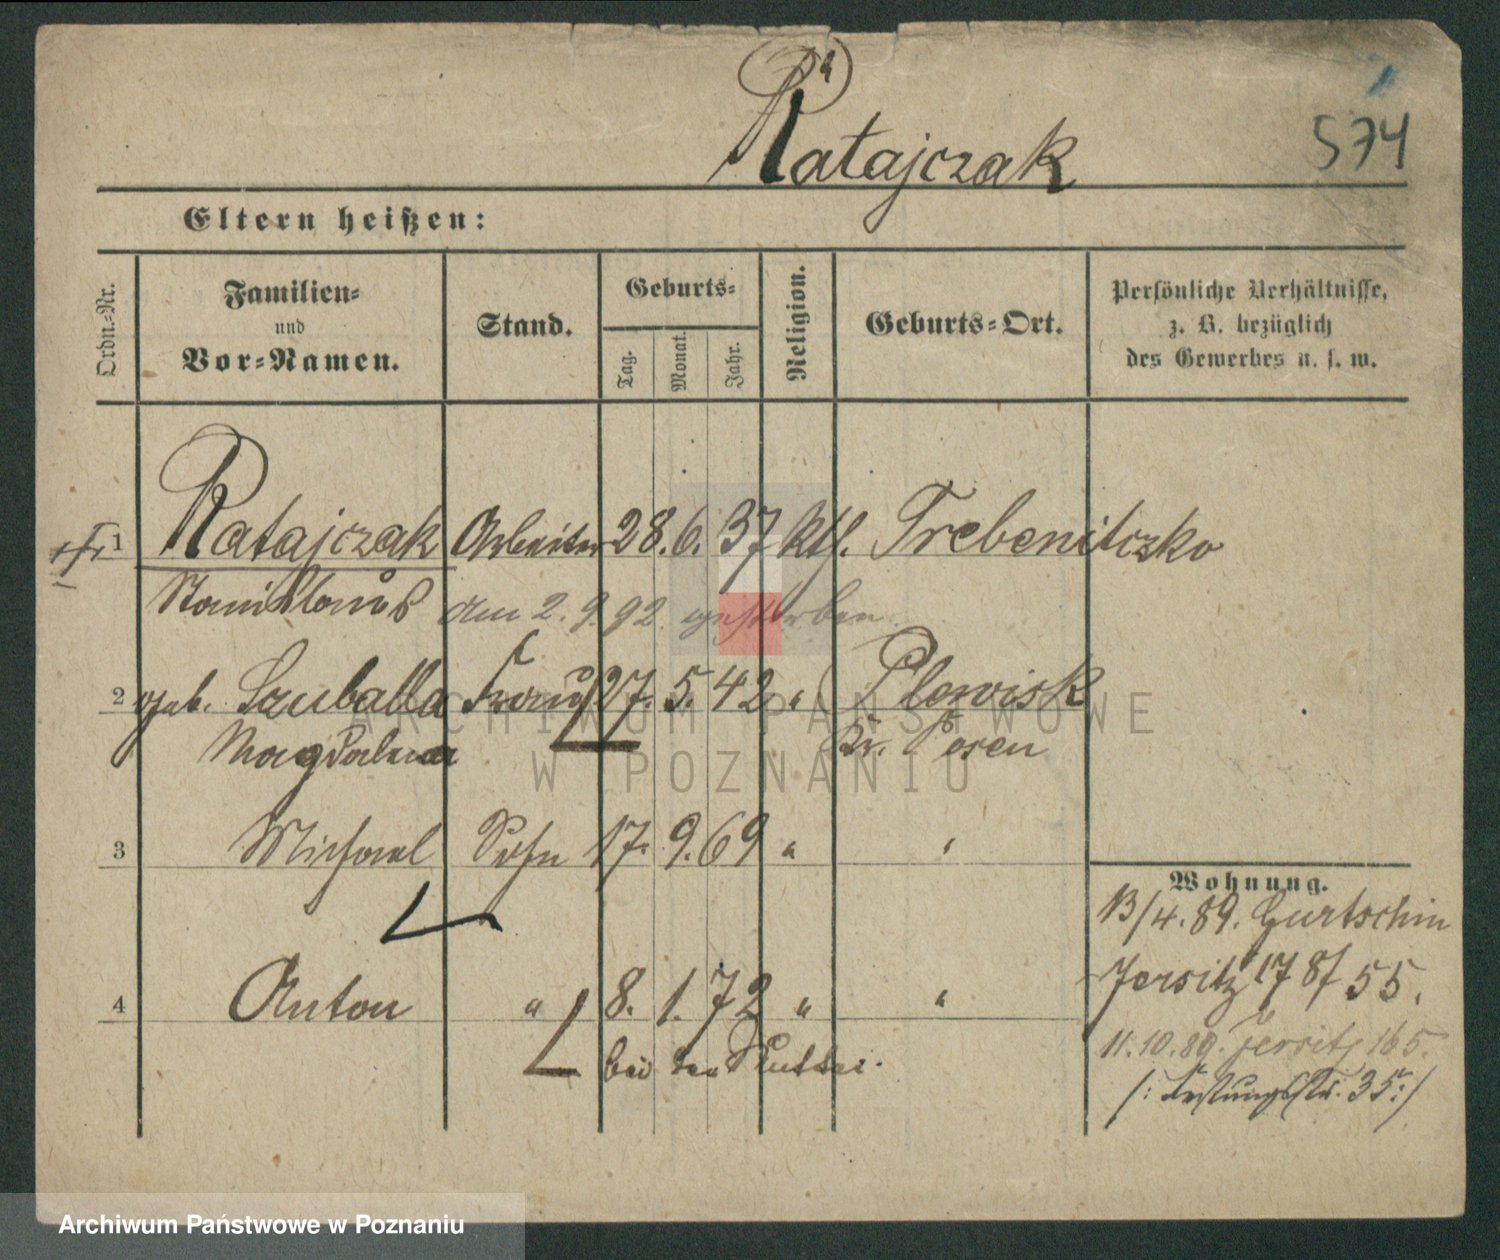 Ratajczak
574
Eltern heißen:
Ordn.-Nr.
Familien-
und
Vor-Namen.
Stand.
Geburts-
Tag.
Monat.
Jahr.
Religion.
Geburts-Ort.
Persönliche Verhältnisse,
z. B. bezüglich
des Gewerbes u. s. w.
1 Ratajczak Arbeiter 28. 6. 37 ktl. Trebenitczko
Stanislaus am 2. 9. 92 gestorben
2 geb. Szuballa Frau 27. 5. 42 " Plewisk
Magdalena Kr. Posen
3 Michael Sohn 17. 9. 69 " "
4 Anton " 8. 1. 72 " "
bei der Mutter.
Wohnung.
13/4. 89. Gurtschin
Jersitz 178/55.
11.10.89. Jersitz 165.
ARCHIWUM PAŃSTWOWE
W POZNANIU
Archiwum Państwowe w Poznaniu